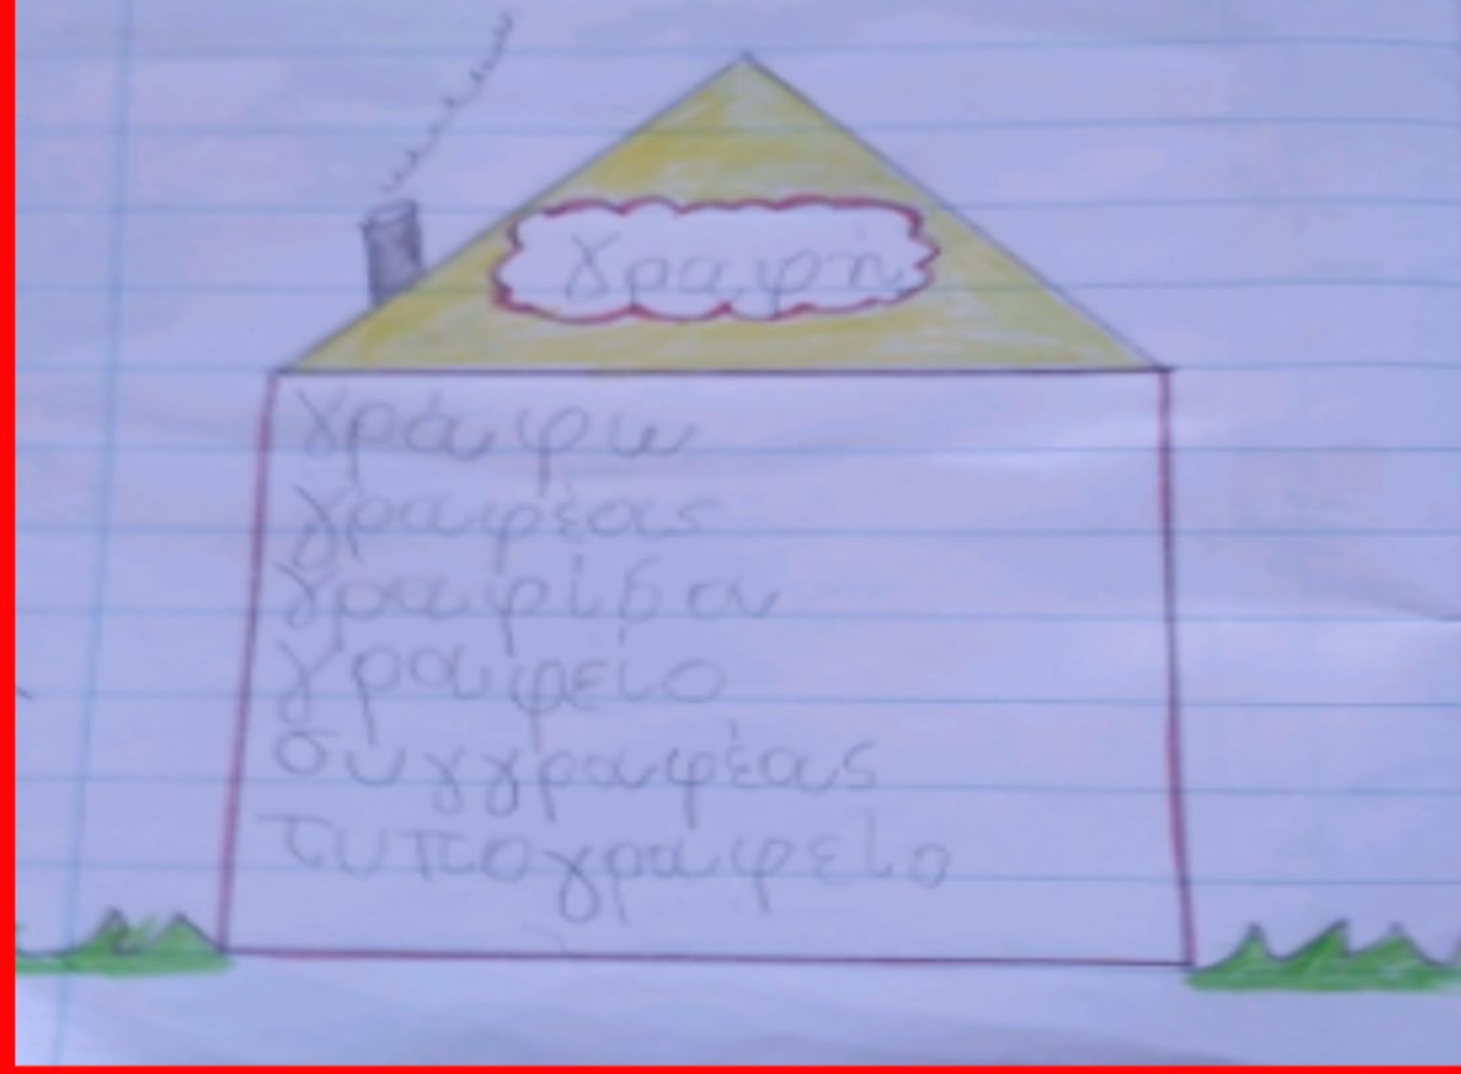 γραφή
γράφω
γραφέας
γραφίδα
γραφείο
συγγραφέας
τυπογραφείο